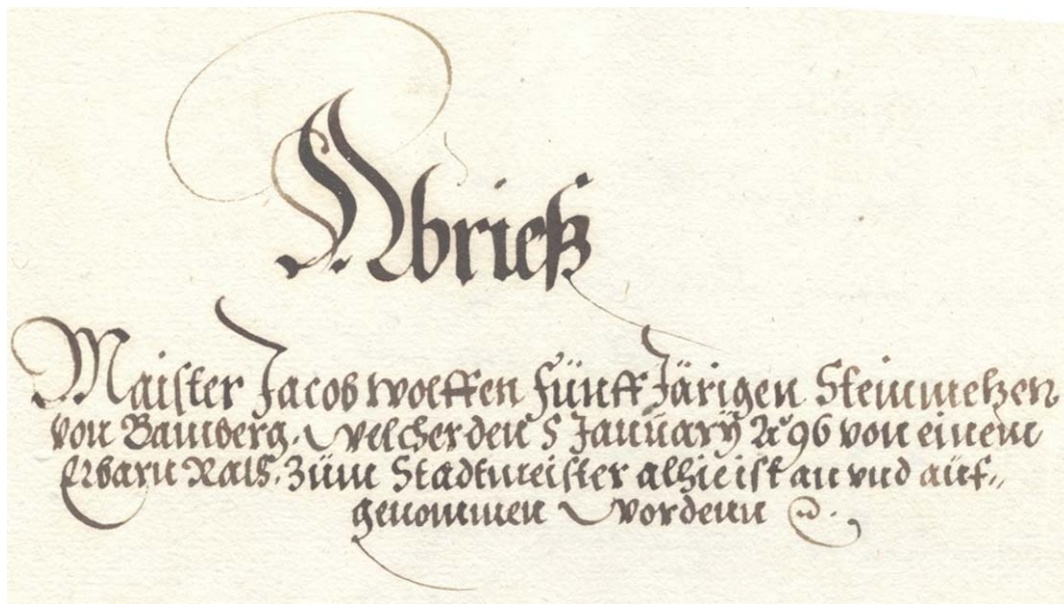 Abrieß
Maister Jacob Wolffen Fünff Järigen Steinmetzen
von Bamberg. Welcher den 5 January Aº 96 von einem
Erbarn Rath. Züm Stadtmeister alhie ist an vnd aüf„
genommen Wordenn